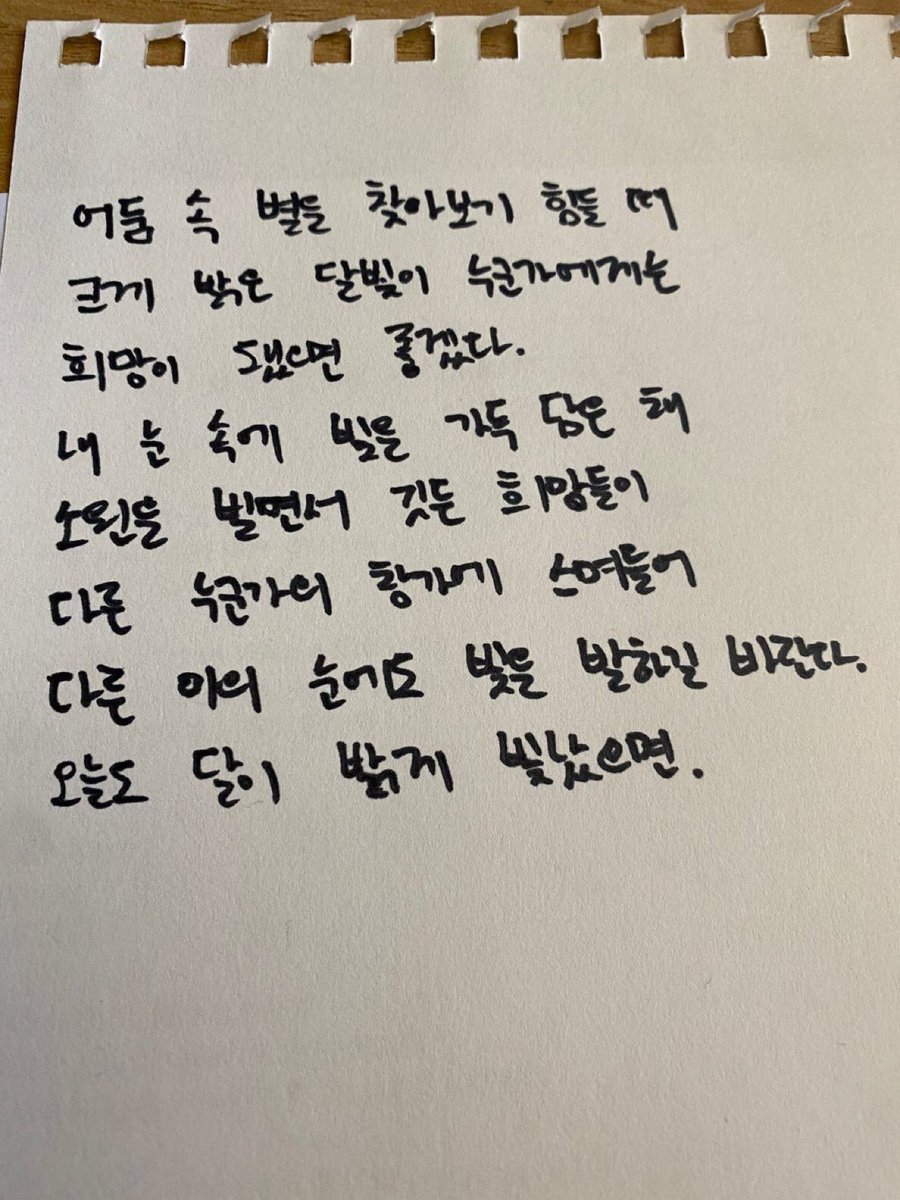 어둠 속 별들 찾아보기 힘들 때
크게 밝은 달빛이 누군가에게는
희망이 됐으면 좋겠다.
내 눈 속에 빛을 가득 담은 채
소원을 빌면서 깃든 희망들이
다른 누군가의 창가에 스며들어
다른 이의 눈에도 빛을 발하길 바란다.
오늘도 달이 밝게 빛났으면.